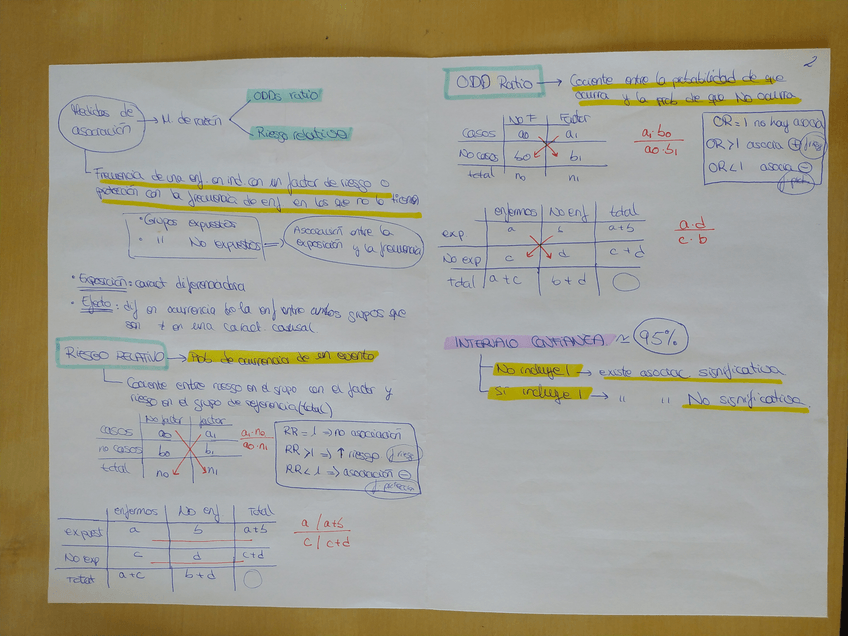 Medidas de
asociación → M de razón
ODDs ratio
Riesgo relativo
Frecuencia de una enf. en ind con un factor de riesgo o
protección con la frecuencia de enf en los que no lo tienen
· Grupos expuestos
· " No expuestos ⇒
Asociación entre la
exposición y la frecuencia
· Exposición: caract diferenciadora
· Efecto: dif en ocurrencia de la enf entre ambos grupos que
son ≠ en una caract causal
RIESGO RELATIVO → Prob de ocurrencia de un evento
Cociente entre riesgo en el grupo con el factor y
riesgo en el grupo de referencia (total)
No factor factor
casos a0 a1
no casos b0 b1
total n0 n1
a1·n0
a0·n1
RR = 1 ⇒ no asociación
RR > 1 ⇒ ↑ riesgo f riesg
RR < 1 ⇒ asociación ⊖
f protección
enfermos No enf Total
expuest a b a+b
No exp c d c+d
Total a+c b+d
a / a+b
c / c+d
2
ODD Ratio → Cociente entre la probabilidad de que
ocurra y la prob de que No ocurra
No F Factor
casos a0 a1
No casos b0 b1
total n0 n1
a1·b0
a0·b1
OR = 1 no hay asocia
OR > 1 asocia ⊕ f riesg
OR < 1 asocia ⊖
f prot
enfermos No enf total
exp a b a+b
No exp c d c+d
total a+c b+d
a·d
c·b
INTERVALO CONFIANZA ≈ 95%
No incluye 1 → existe asociac significativa
Si incluye 1 → " " No significativa.